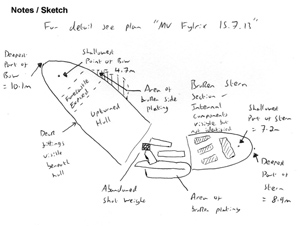 Notes / Sketch
For detail see plan "MV Fylrix 15.7.13"
Deepest
Part of
Bow
= 10.1m
Shallowest
Point of Bow
= 4.7m
Area of
broken side
plating
Broken Stern
Section -
Internal
Components
visible but
not identified
Shallowest
Part of Stern
= 7.2m
Forecastle
Exposed
Upturned
Hull
Deck
fittings
visible
beneath
hull
Abandoned
Shot weight
Area of
broken plating
Deepest
Part of
Stern
= 8.9m